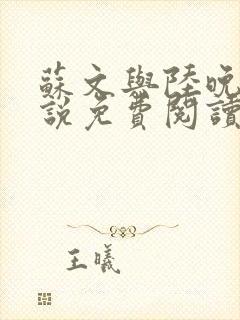 蘇文與陸晚
說免費閱讀
王曦